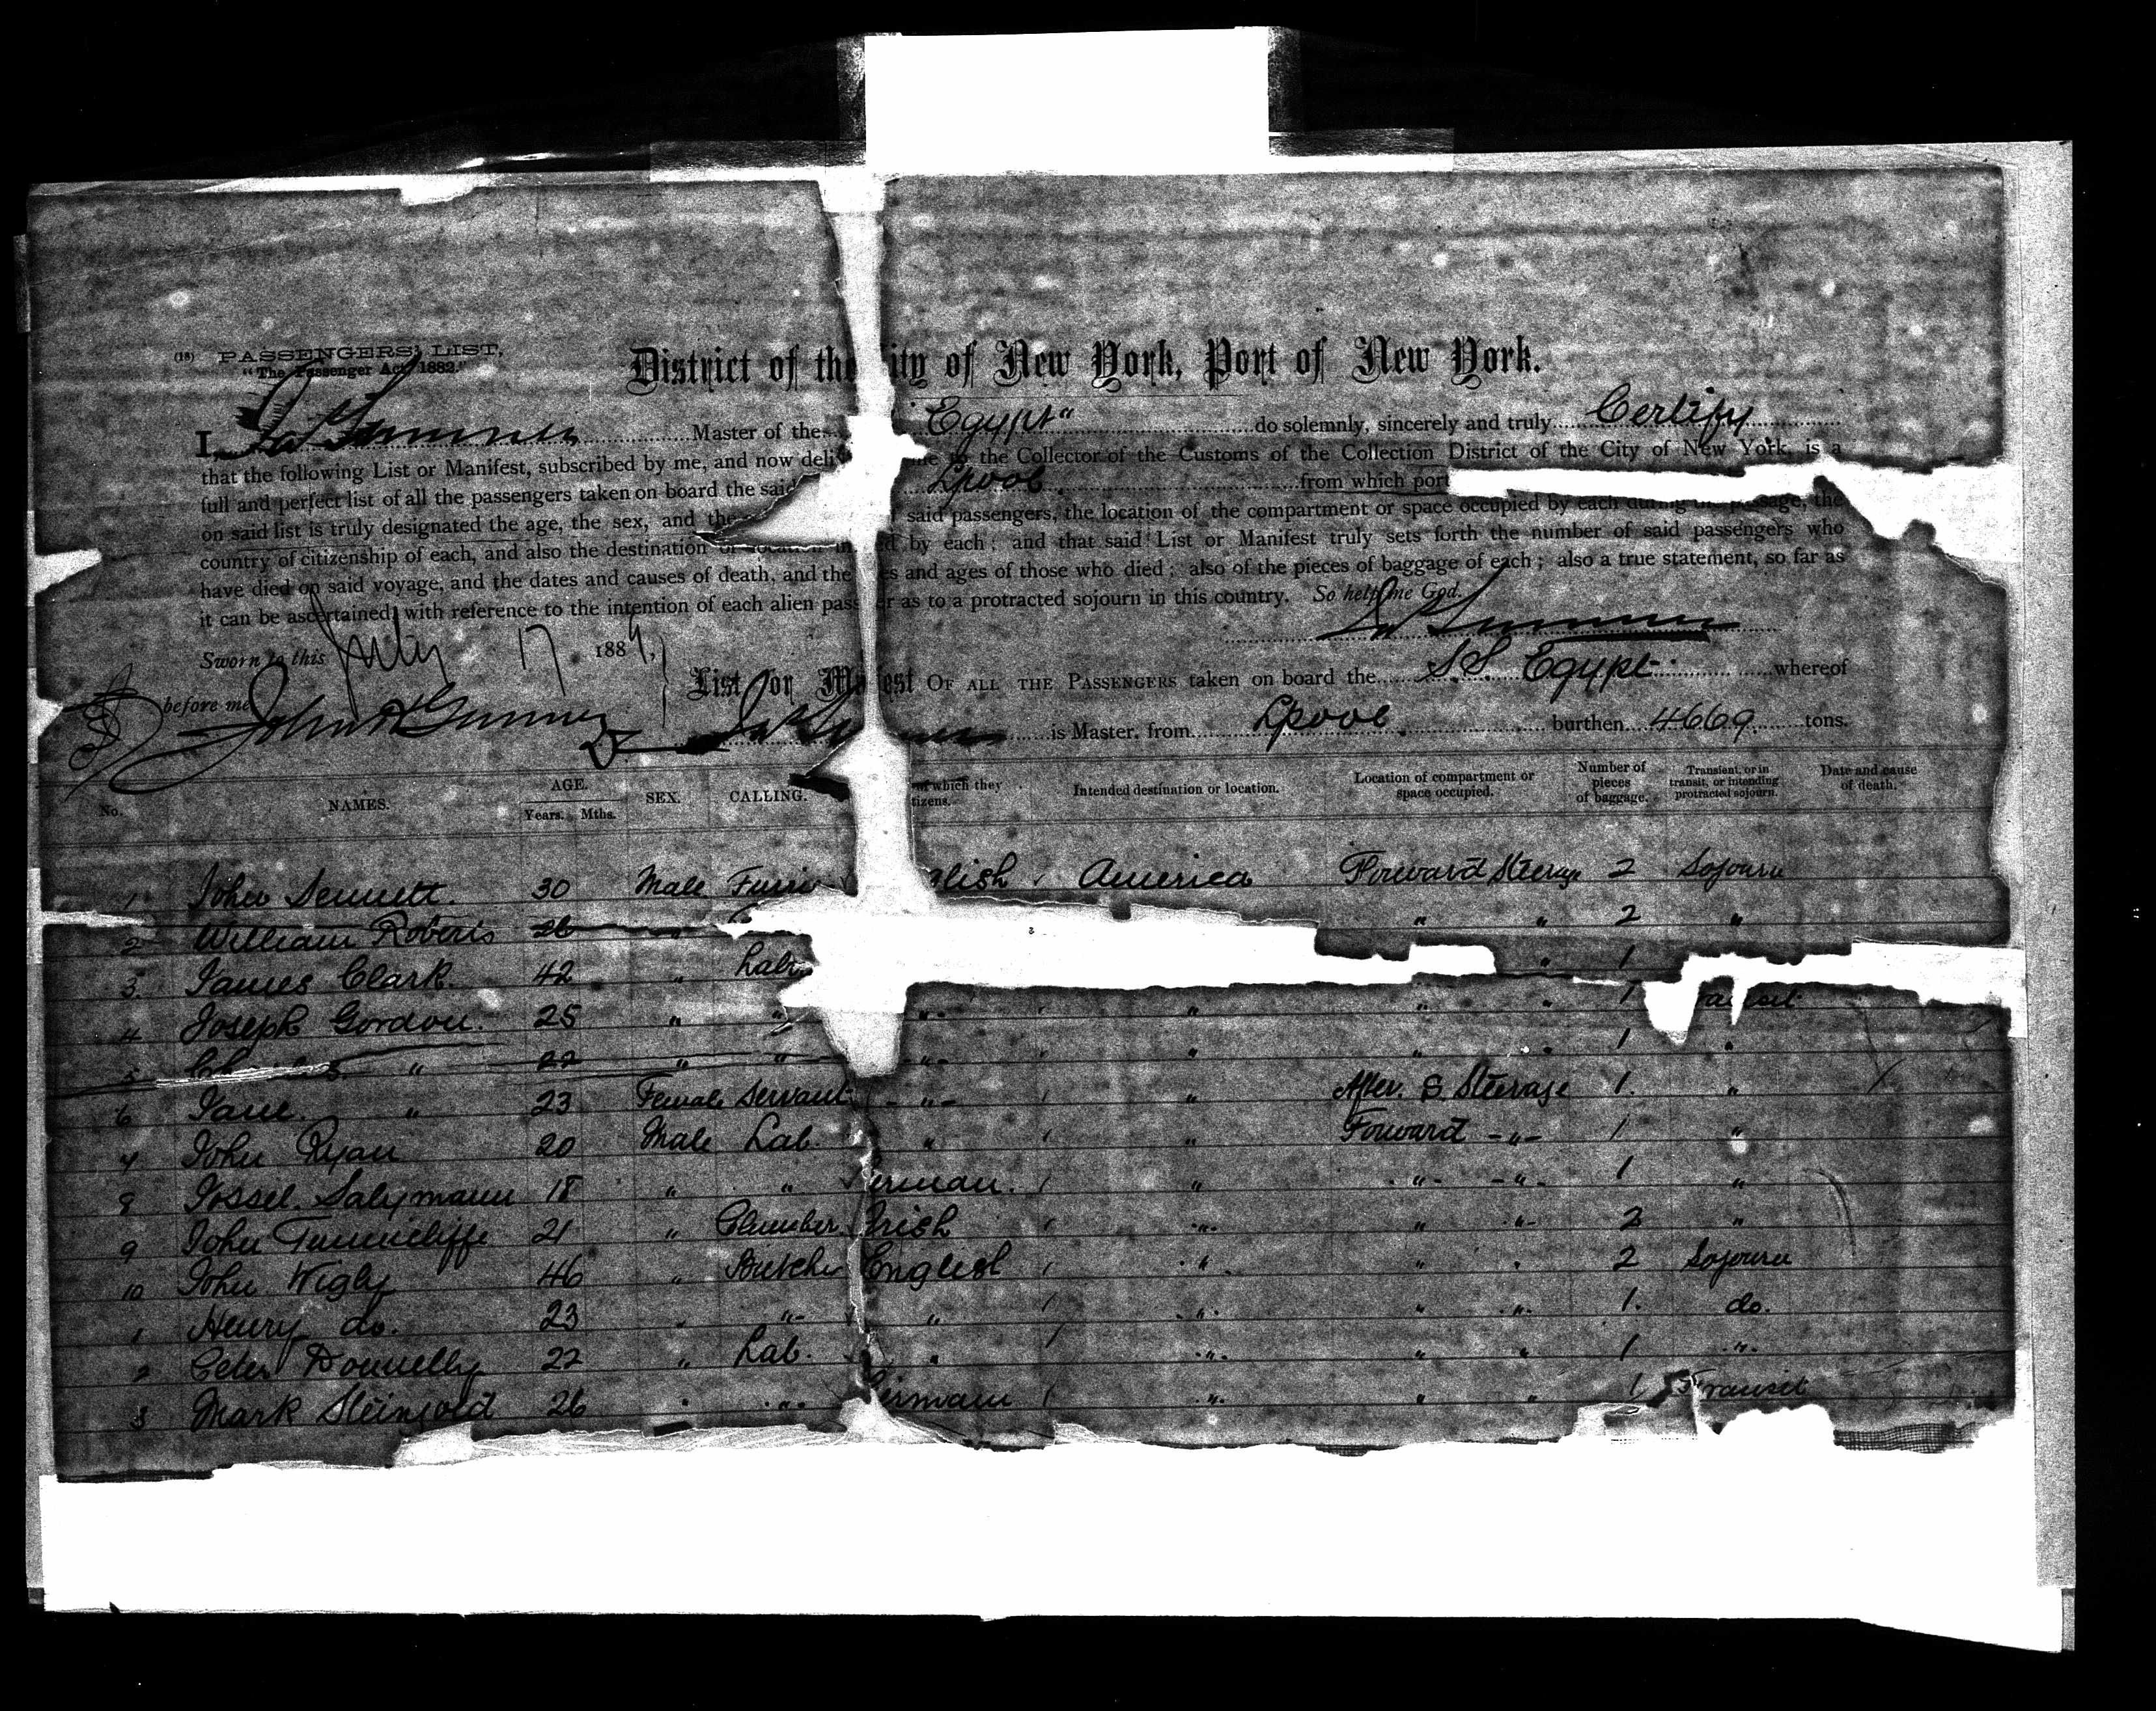 (18) PASSENGERS' LIST,
"The Passenger Act, 1882."
District of the City of New York, Port of New York.
I, Master of the Egypt" do solemnly, sincerely and truly Certify
that the following List or Manifest, subscribed by me, and now to the Collector of the Customs of the Collection District of the City of New York, is a
full and perfect list of all the passengers taken on board the said Lpool from which port
on said list is truly designated the age, the sex, and the said passengers, the location of the compartment or space occupied by each during the passage, the
country of citizenship of each, and also the destination or location by each; and that said List or Manifest truly sets forth the number of said passengers who
have died on said voyage, and the dates and causes of death, and the and ages of those who died; also of the pieces of baggage of each; also a true statement, so far as
it can be ascertained, with reference to the intention of each alien as to a protracted sojourn in this country. So help me God.
Sworn to this July 17 188
List or Manifest OF ALL THE PASSENGERS taken on board the S.S. Egypt whereof
before me John
is Master, from Lpool burthen 4669 tons.
No. NAMES. AGE. Years. Mths. SEX. CALLING. of which they Intended destination or location. Location of compartment or space occupied. Number of pieces of baggage. Transient, or in transit, or intending protracted sojourn. Date and cause of death.
1 John Sennett. 30 Male America Forward Steerage 2 Sojourn
2 William Roberts 26 " " " 2 "
3 James Clark. 42 " Labr " 1
4 Joseph Gordon. 25 " " " " " " 1
5 " 22 " " " " " " 1 "
6 Jane. " 23 Female Servant " " After. S. Steerage 1. "
7 John Ryan 20 Male Lab. " " Forward " 1 "
8 Jossel. Salzmann 18 " " German. " " " 1 "
9 John Tunnicliffe 21 " Plumber Irish " " " 2 "
10 John Wigly 46 " Butcher English " " " 2 Sojourn
1 Henry do. 23 " " " " " " 1. do.
2 Peter Donnelly 22 " Lab. " " " " 1 "
3 Mark 26 " " German " " " 1 Transit